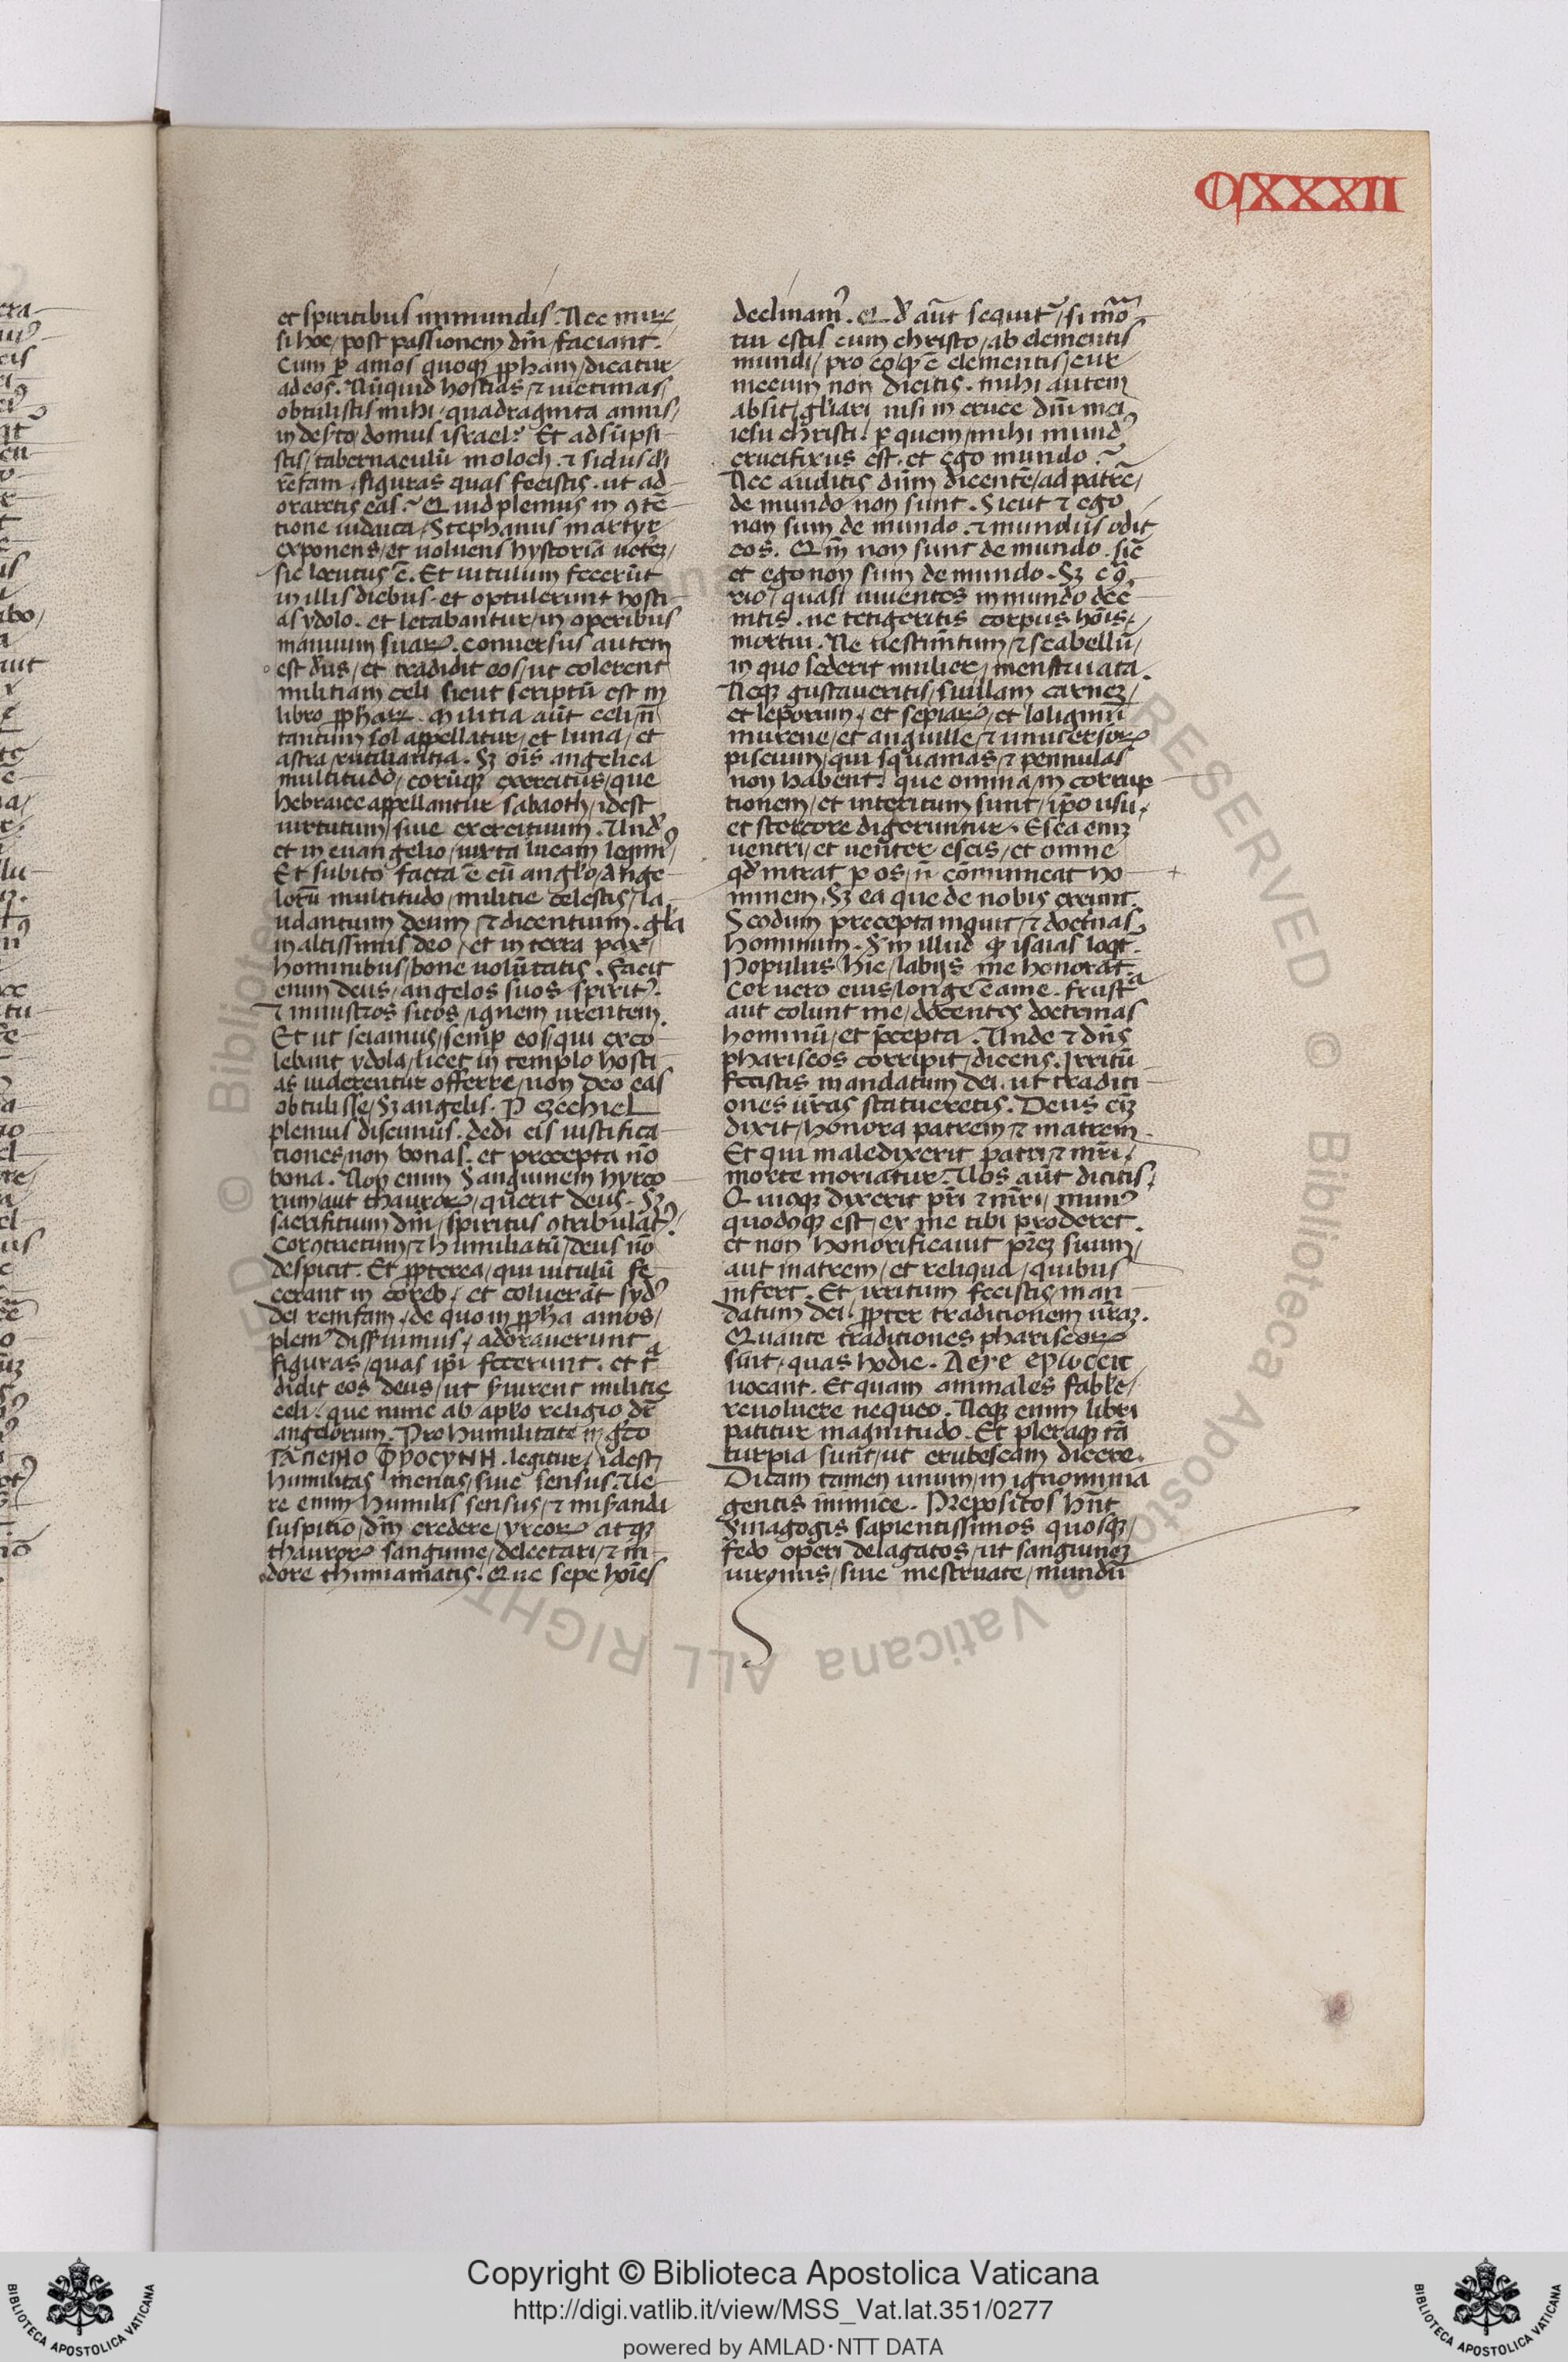 CXXXII
et spiritibus inmundis. Nec miru᷒
si hoc/ post passionem dn̄i/ faciant.
Cum ꝑ amos quoqꝫ ꝓpham/ dicatur
ad eos. Nūquid hostias/ ⁊ uictimas/
obtulistis mihi/ quadraginta annis/
in deẜto/ domus israel? Et adsūpsi-
stis/ tabernaculū moloch. ⁊ sidus di
refam/ figuras quas fecistis. ut ad-
oraretis eas? Quid plenius in ꝯtē-
tione iudaica/ Stephanus martyr
exponens/ et uoluens hystoriā ueterꝫ/
sic locutus ē. Et uitulum fecerūt
in illis diebus. et optulerunt hosti-
as ydolo. et letabantur/ in operibus
manuum suaꝝ. conuersus autem
est dn̄s/ et tradidit eos/ ut colerent
militiam celi sicut scriptū est in
libro ꝓphaꝝ. Militia aūt celi/ n̄
tantum sol appellatur/ et luna/ et
astra/ rutilantia. Sꝫ oīs angelica
multitudo/ eorūqꝫ exercitus/ que
hebraice appellantur sabaoth/ idest
uirtutum/ siue exercituum. Und᾽
et in euangelio/ iuxta lucam legim᾽/
Et subito facta ē cū anglo/ Ange-
lorū multitudo/ militie celestis/ la-
udantium deum/ ⁊ dicentium. gl̄a
in altissimis deo/ et in terra pax/
hominibus/ bone uolūtatis. Facit
enim deus/ angelos suos spirit᾽.
⁊ ministros suos/ ignem urentem.
Et ut sciamus/ semꝑ eos/ qui exco-
lebant ydola/ licet in templo hosti-
as uiderentur offerre/ non deo eas
obtulisse/ Sꝫ angelis. P ezechiel
plenius discimus. dedi eis iustifica-
tiones/ non bonas. et precepta nō
bona. Noꝗ enim Sanguinem hyrco-
rum/ aut thauroꝝ/ querit deus. Sꝫ
sacrifitium dn̄i/ spiritus ꝯtribulat᾽.
Cor ꝯtritum/ ⁊ humiliatū/ deus nō
despicit. Et ꝓpterea/ qui uitulū fe-
cerant in coreb/ et coluerāt syd᾽
dei remfam/ de quo in ꝓpha amos/
plem᾽ disseruimus/ adorauerunt
figuras/ quas ip̄i fecerunt. et tᵃ
didit eos deus/ ut ẜuirent militie
celi. que nunc ab aplo religio dr̄
angelorum. Pro humilitate in gr̄co
ΤΑΠΕΙΝΟ ΦΡΟCΥΝΗ. legitur/ idest
humilitas mentis/ siue sensus. Ue-
re enim humilis sensus/ ⁊ miẜandi
suspitio/ dn̄m credere/ yrcoꝝ atqꝫ
thauroꝝ sanguine/ delectari/ ⁊ ni-
dore thimiamatis. Que sepe hoīes
declinam᾽. Qd᾽ aūt sequit᾽/ si mō-
tui estis cum christo/ ab elementis
mundi/ pro eoꝙ ē elementis/ cur
mecum non dicitis. mihi autem
absit/ gl̄iari nisi in cruce dn̄i mei
iesu christi. ꝑ quem/ mihi mund᾽
crucifixus est. et ego mundo?
Nec auditis dn̄m dicentē/ ad patrē/
de mundo non sunt. Sicut ⁊ ego
non sum de mundo. ⁊ mundus odit
eos. Qm̄ non sunt de mundo. sic̄
et ego non sum de mundo. Sꝫ e ꝯ-
rio/ quasi uiuentes in mundo dec-
nitis. ne tetigeritis corpus hōis/
mortui. Ne uestim̄tum/ ⁊ scabellū/
in quo sederit mulier/ menstruata.
Neqꝫ gustaueritis/ suillam carneꝫ/
et leporum/ et sepiaꝝ/ et loliginū
murene/ et anguille/ ⁊ uniuersoꝝ
piscium/ qui squamas/ ⁊ pennulas
non habent. que omnia/ in corrup
tionem/ et interitum sunt/ ip̄o usu.
et stercore digeruntur. Esca eniꝫ
uentri/ et uenter escis/ et omne
qd᾽ intrat ꝑ os/ n̄ cōmunicat ho-
minem. Sꝫ ea que de nobis exeunt.
Scōdum precepta inquit/ ⁊ doctⁱnas
hominum. Sm̄ illud qd᾽ isaias loqt᾽.
Populus hic/ labijs me honorat.
Cor uero eius/ longe ē ame. frustᵃ
aut colunt me/ docentes doctrinas
hominū/ et p̄cepta. Unde ⁊ dn̄s
phariseos corripit/ dicens. Irritū
fecistis mandatum dei. ut traditi-
ones ur̄as statueretis. Deus eiꝫ
dixit/ honora patrem ⁊ matrem.
Et qui maledixerit patri/ ⁊ mr̄i/
morte moriatur. Uos aūt dicitis/
Quicꝗꝫ dixerit pr̄i ⁊ mr̄i/ mun᾽
quodcꝗꝫ est/ ex me tibi proderet.
et non honorificauit pr̄eꝫ suum/
aut matrem/ et reliqua/ quibus
infert. Et irritum fecistis/ man
datum dei. ꝓpter traditionem ur̄aꝫ.
Quante traditiones phariseoꝝ
sint/ quas hodie. ΔΕΥΕ ΕΡΙѠCΕΙC
uocant. Et quam animales fable/
reuoluere nequeo. Neqꝫ enim libri
patitur magnitudo. Et pleraqꝫ tā
turpia sunt/ ut erubescam dicere.
Dicam tamen unum/ in ignominia
gentis inimice. Prepositos hn̄t
Synagogis sapientissimos quosqꝫ/
fedo operi delagatos/ ut sanguineꝫ
uirginis/ siue mestruate/ mundū
Copyright © Biblioteca Apostolica Vaticana
http://digi.vatlib.it/view/MSS_Vat.lat.351/0277
powered by AMLAD·NTT DATA